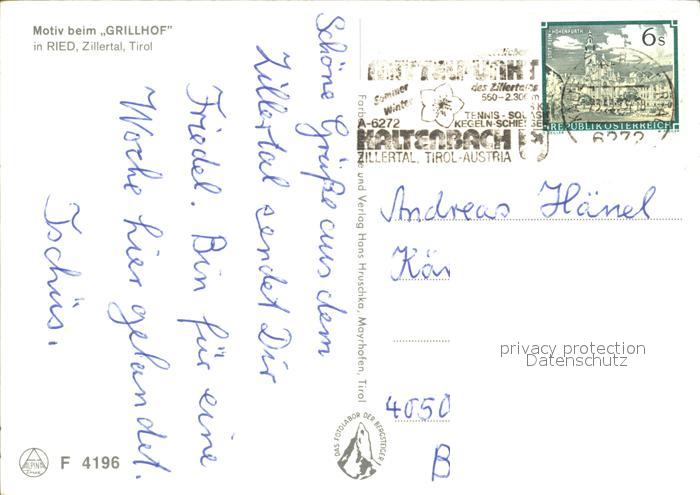 Motiv beim „GRILLHOF"
in RIED, Zillertal, Tirol
Schöne Grüße aus dem
Zillertal sendet Dir
Friedel. Bin für eine
Woche hier gelandet.
Tschüs.
F 4196
und Verlag Hans Hruschka, Mayrhofen, Tirol
DAS FOTOLABOR DER BERGSTEIGER
Sommer
Winter
des Zillertales
550-2.300m
TENNIS-SQUASH
A-6272 KEGELN-SCHIE
KALTENBACH
ZILLERTAL, TIROL-AUSTRIA
6 S
REPUBLIK ÖSTERREICH
6272
Andreas Hänel
Kär
4050
B
privacy protection
Datenschutz